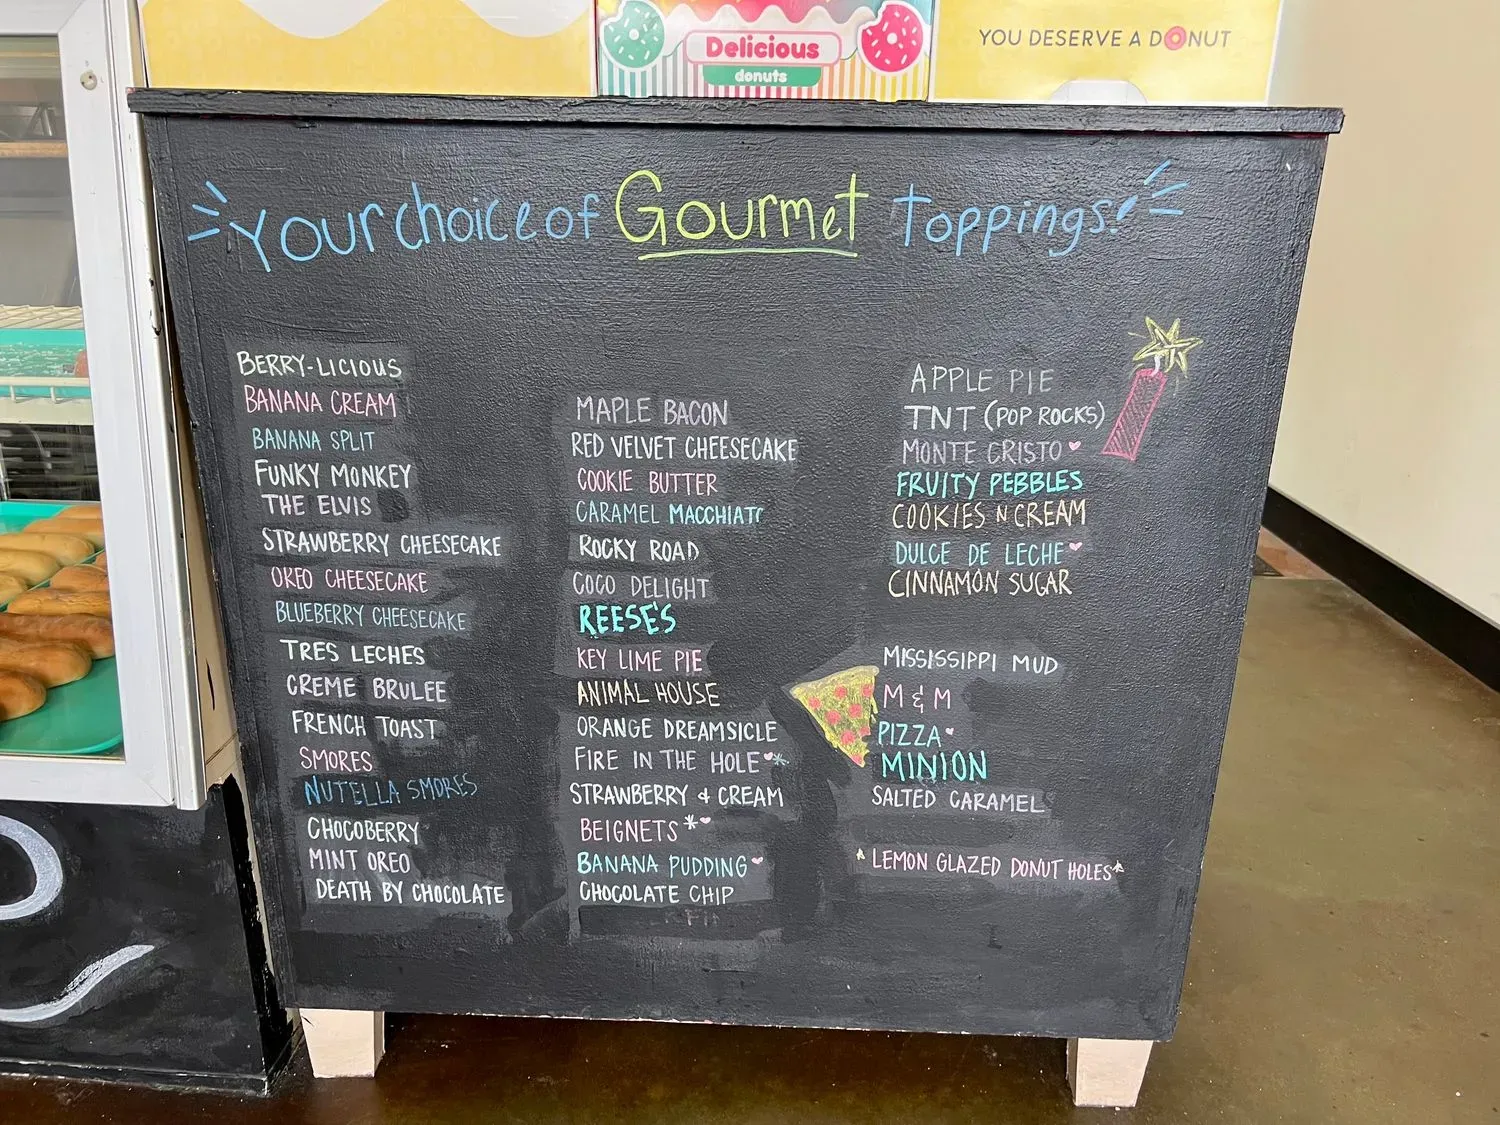 Delicious
donuts
YOU DESERVE A DONUT
Your choice of Gourmet Toppings!
BERRY-LICIOUS
BANANA CREAM
BANANA SPLIT
FUNKY MONKEY
THE ELVIS
STRAWBERRY CHEESECAKE
OREO CHEESECAKE
BLUEBERRY CHEESECAKE
TRES LECHES
CREME BRULEE
FRENCH TOAST
SMORES
NUTELLA SMORES
CHOCOBERRY
MINT OREO
DEATH BY CHOCOLATE
MAPLE BACON
RED VELVET CHEESECAKE
COOKIE BUTTER
CARAMEL MACCHIATO
ROCKY ROAD
COCO DELIGHT
REESE'S
KEY LIME PIE
ANIMAL HOUSE
ORANGE DREAMSICLE
FIRE IN THE HOLE ♥*
STRAWBERRY & CREAM
BEIGNETS *♥
BANANA PUDDING ♥
CHOCOLATE CHIP
APPLE PIE
TNT (POP ROCKS)
MONTE CRISTO ♥
FRUITY PEBBLES
COOKIES N CREAM
DULCE DE LECHE ♥
CINNAMON SUGAR
MISSISSIPPI MUD
M & M
PIZZA ♥
MINION
SALTED CARAMEL
* LEMON GLAZED DONUT HOLES *